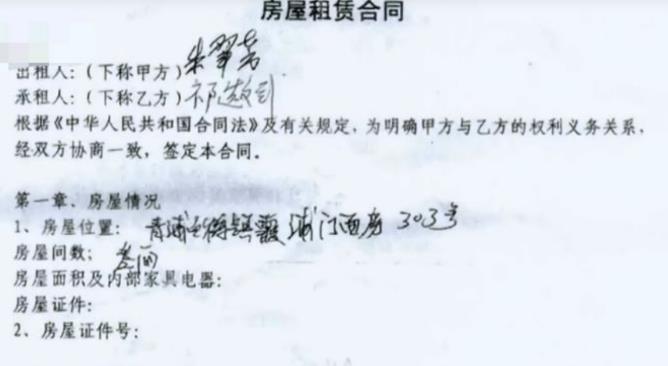 房屋租赁合同
出租人：（下称甲方）朱翠芳
承租人：（下称乙方）祁
根据《中华人民共和国合同法》及有关规定，为明确甲方与乙方的权利义务关系，
经双方协商一致，签定本合同。
第一章、房屋情况
1、房屋位置： 青浦 镇 浦门西房 303号
房屋间数；
房屋面积及内部家具电器：
房屋证件：
2、房屋证件号：